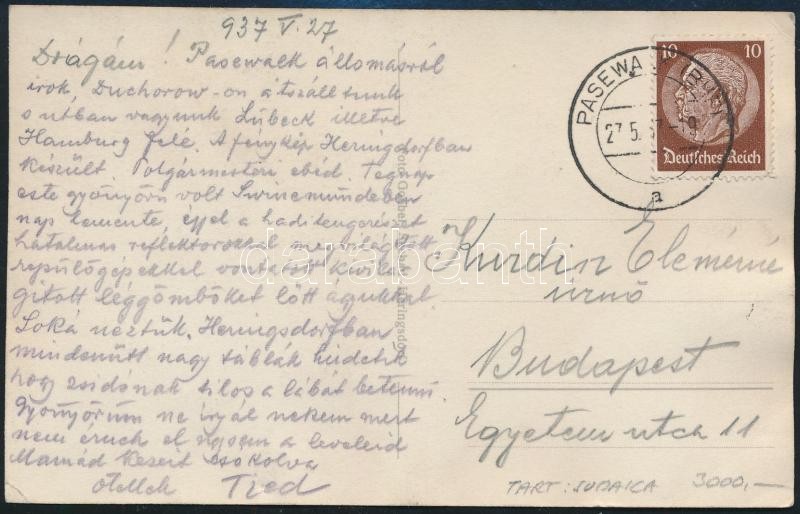 937 V. 27
Drágám! Pasewalk állomásról
irok, Duchorow-on átszálltunk
s utban vagyunk Lübeck illetve
Hamburg felé. A fénykép Heringdorfban
készült. Polgármesteri ebéd. Tegnap
este gyönyörü volt Swinemündeben
nap lemente, éjjel a haditengerészet
hatalmas reflektorokkal megvilágitott
repülőgépekkel vontatott kivilá-
gitott léggömböket lőtt ágyukkal.
Soká néztük. Heringsdorfban
mindenütt nagy táblák hirdetik
hogy zsidónak tilos a lábát betenni
Gyönyörüm ne irjál nekem mert
nem érnek el ugysem a leveleid
Mamád kezeit csokolva
ölellek Tied
Heringsdorf
PASEWALK
27.5.37
a
10 10
Deutsches Reich
Kurdin Elemérné
urnő
Budapest
Egyetem utca 11
TART: JUDAICA 3000,-
darabanth